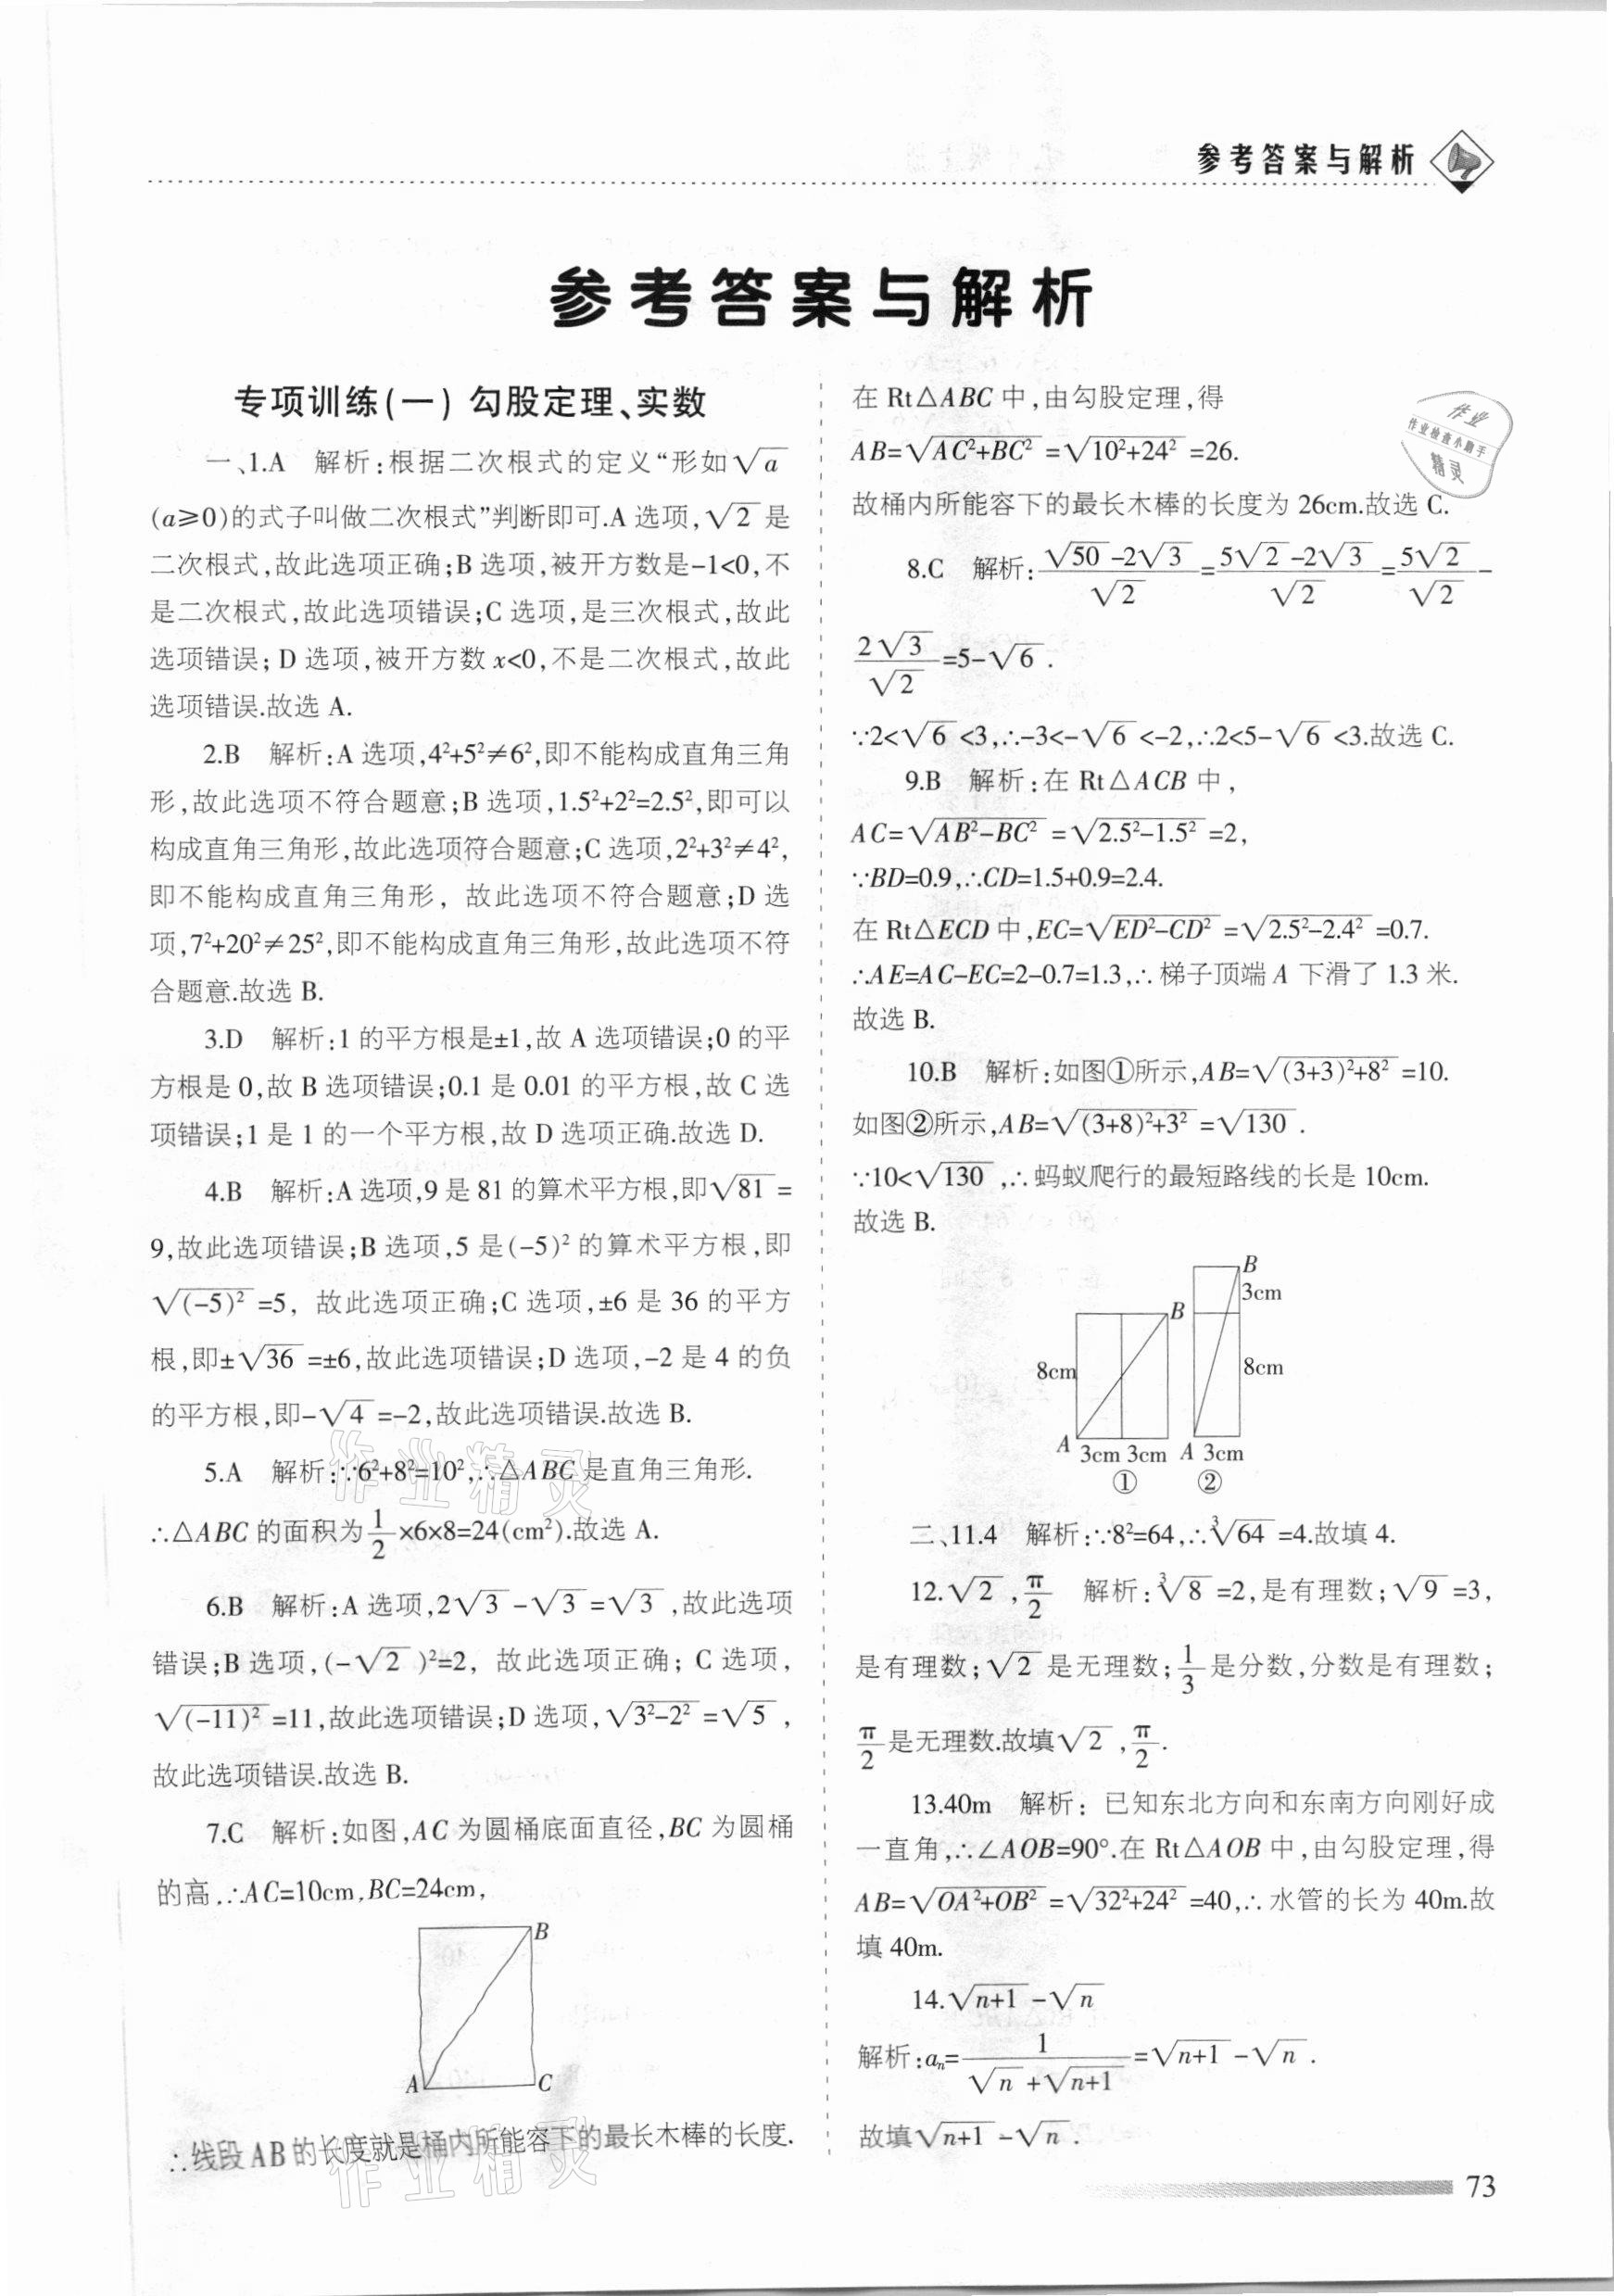 参考答案与解析
参考答案与解析
专项训练(一) 勾股定理、实数
一、1.A 解析:根据二次根式的定义“形如√a
(a≥0)的式子叫做二次根式”判断即可.A 选项,√2 是
二次根式,故此选项正确;B 选项,被开方数是-1<0,不
是二次根式,故此选项错误;C 选项,是三次根式,故此
选项错误; D 选项,被开方数 x<0,不是二次根式,故此
选项错误.故选 A.
2.B 解析:A 选项,4²+5²≠6²,即不能构成直角三角
形,故此选项不符合题意;B 选项,1.5²+2²=2.5²,即可以
构成直角三角形,故此选项符合题意;C 选项,2²+3²≠4²,
即不能构成直角三角形, 故此选项不符合题意;D 选
项,7²+20²≠25²,即不能构成直角三角形,故此选项不符
合题意.故选 B.
3.D 解析:1 的平方根是±1,故 A 选项错误;0 的平
方根是 0,故 B 选项错误;0.1 是 0.01 的平方根,故 C 选
项错误;1 是 1 的一个平方根,故 D 选项正确.故选 D.
4.B 解析:A 选项,9 是 81 的算术平方根,即√81 =
9,故此选项错误;B 选项,5 是(-5)² 的算术平方根,即
√(-5)² =5, 故此选项正确;C 选项,±6 是 36 的平方
根,即±√36 =±6,故此选项错误;D 选项,-2 是 4 的负
的平方根,即-√4 =-2,故此选项错误.故选 B.
5.A 解析:∵6²+8²=10²,∴△ABC 是直角三角形.
∴△ABC 的面积为1/2×6×8=24(cm²).故选 A.
6.B 解析:A 选项,2√3 -√3 =√3 ,故此选项
错误;B 选项,(-√2 )²=2, 故此选项正确; C 选项,
√(-11)² =11,故此选项错误;D 选项,√(3²-2²) =√5 ,
故此选项错误.故选 B.
7.C 解析:如图,AC 为圆桶底面直径,BC 为圆桶
的高.∴AC=10cm,BC=24cm,
B
A
C
∴线段 AB 的长度就是桶内所能容下的最长木棒的长度.
在 Rt△ABC 中,由勾股定理,得
AB=√(AC²+BC²) =√(10²+24²) =26.
故桶内所能容下的最长木棒的长度为 26cm.故选 C.
8.C 解析:(√50 -2√3)/√2 =(5√2 -2√3)/√2 =5√2/√2 -
2√3/√2 =5-√6 .
∵2<√6 <3,∴-3<-√6 <-2,∴2<5-√6 <3.故选 C.
9.B 解析:在 Rt△ACB 中,
AC=√(AB²-BC²) =√(2.5²-1.5²) =2,
∵BD=0.9,∴CD=1.5+0.9=2.4.
在 Rt△ECD 中,EC=√(ED²-CD²) =√(2.5²-2.4²) =0.7.
∴AE=AC-EC=2-0.7=1.3,∴梯子顶端 A 下滑了 1.3 米.
故选 B.
10.B 解析:如图①所示,AB=√((3+3)²+8²) =10.
如图②所示,AB=√((3+8)²+3²) =√130 .
∵10<√130 ,∴蚂蚁爬行的最短路线的长是 10cm.
故选 B.
B
3cm
B
8cm
8cm
A 3cm 3cm A 3cm
① ②
二、11.4 解析:∵8²=64,∴∛64 =4.故填 4.
12.√2 ,π/2 解析:∛8 =2,是有理数;√9 =3,
是有理数;√2 是无理数;1/3是分数,分数是有理数;
π/2是无理数.故填√2 ,π/2.
13.40m 解析: 已知东北方向和东南方向刚好成
一直角,∴∠AOB=90°.在 Rt△AOB 中,由勾股定理,得
AB=√(OA²+OB²) =√(32²+24²) =40,∴水管的长为 40m.故
填 40m.
14.√(n+1) -√n
解析:aₙ=1/(√n +√(n+1)) =√(n+1) -√n .
故填√(n+1) -√n .
73
作业
作业检查小助手
精灵
作业精灵
作业精灵